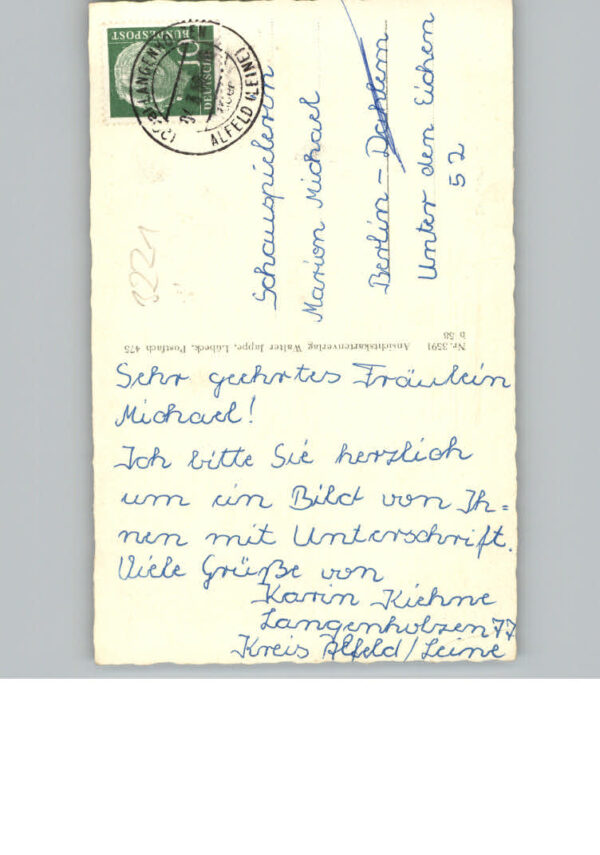 DEUTSCHE
BUNDESPOST
10
LANGENH
ALFELD (LEINE)
Schauspielerin
Marion Michael
Berlin - Dahlem
Unter den Eichen
52
3221
Nr. 3591 Ansichtskartenverlag Walter Jappe, Lübeck, Postfach 475
b 58
Sehr geehrtes Fräulein
Michael!
Ich bitte Sie herzlich
um ein Bild von Ih=
nen mit Unterschrift.
Viele Grüße von
Karin Kiehne
Langenholzen 77
Kreis Alfeld/Leine